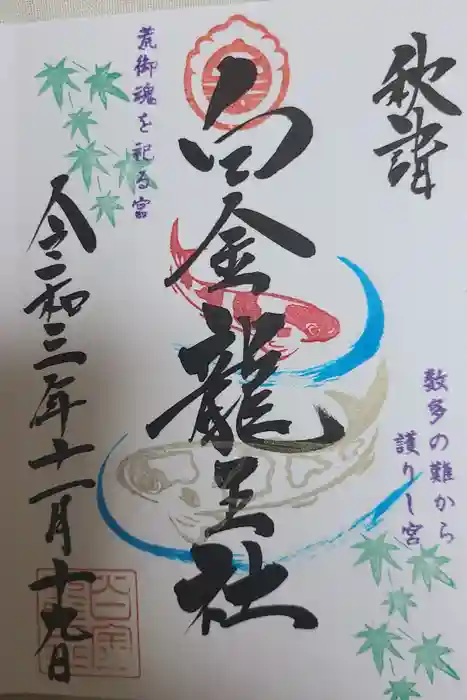 秋詣
白金龍王社
荒御魂を祀る宮
数多の難から
護りし宮
令和三年十一月十九日